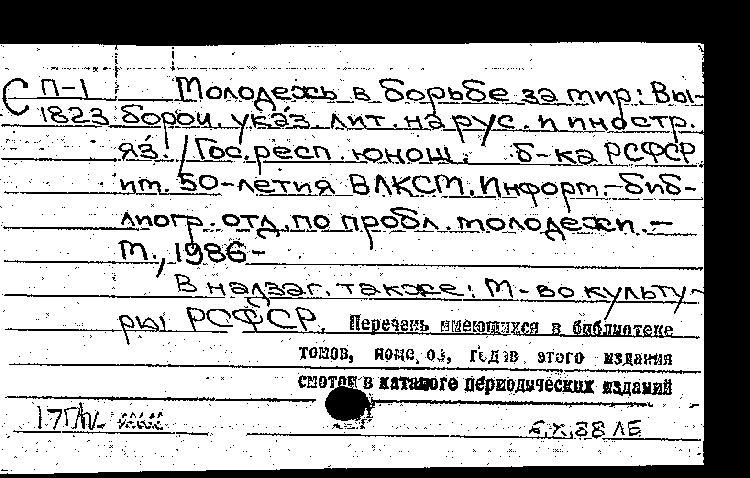 С П-1 Молодежь в борьбе за мир: Вы-
1823 борочн. указ. лит. на рус. и иностр.
яз. / Гос. респ. юнош. б-ка РСФСР
им. 50-летия ВЛКСМ. Информ.-биб-
лиогр. отд. по пробл. молодежи. –
М., 1986-
В надзаг. также: М-во культу-
ры РСФСР.
Перечень имеющихся в библиотеке
томов, годов этого издания
смотри в каталоге периодических изданий
88 ЛЕ